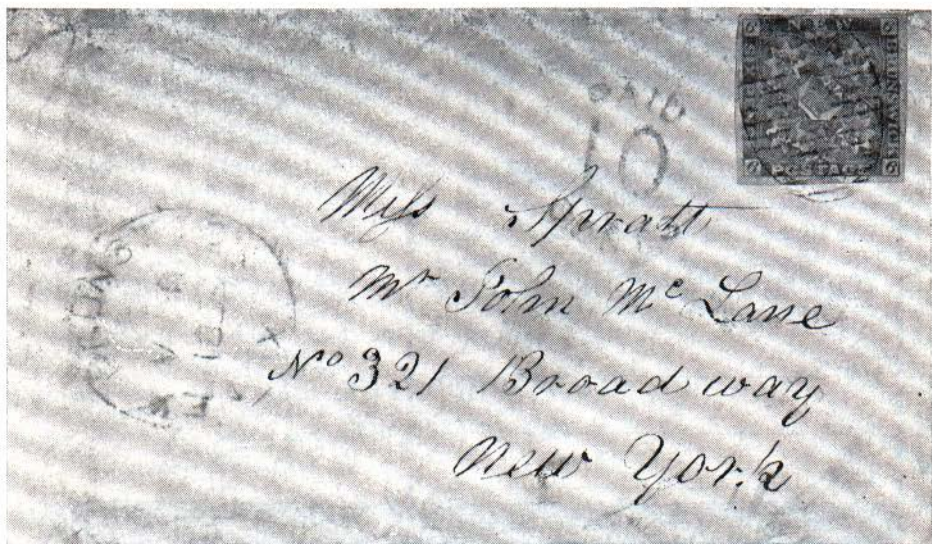 NEW
BRUNSWICK
POSTAGE
PAID
10
Miss Spratt
Mr John Mc Lane
No 321 Broad way
New York